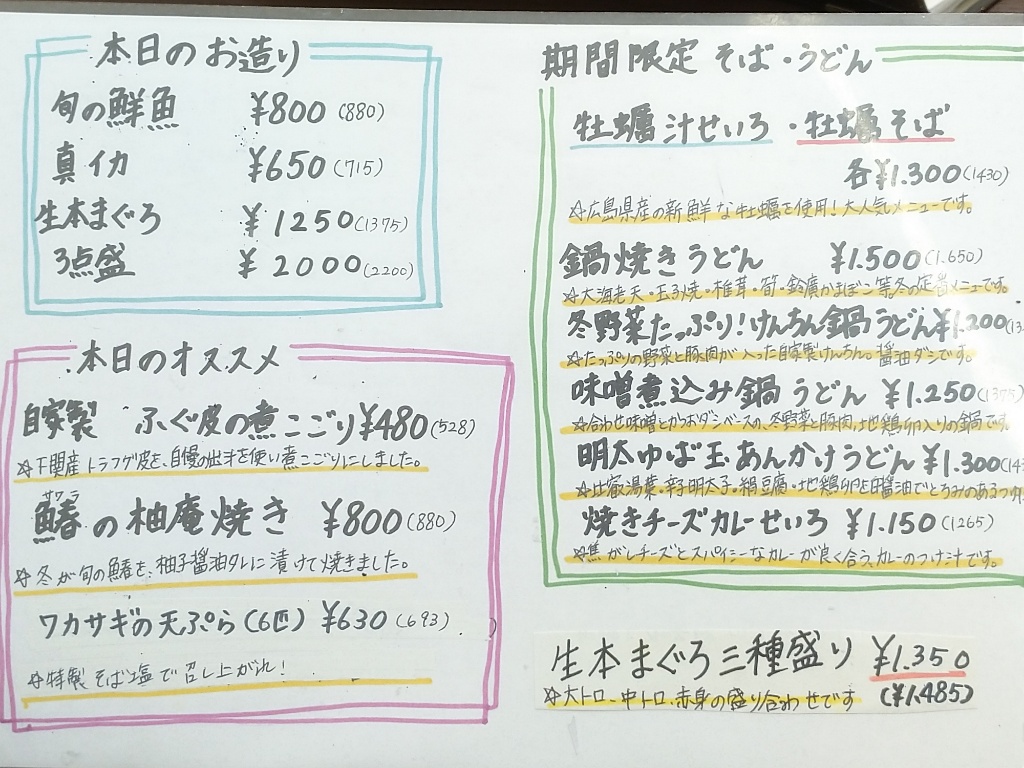 本日のお造り
旬の鮮魚 ¥800(880)
真イカ ¥650(715)
生本まぐろ ¥1250(1375)
3点盛 ¥2000(2200)
本日のオススメ
自家製 ふぐ皮の煮こごり ¥480(528)
☆下関産トラフグ皮を、自慢の出汁を使い煮こごりにしました。
サワラ
鰆の柚庵焼き ¥800(880)
☆冬が旬の鰆を、柚子醤油タレに漬けて焼きました。
ワカサギの天ぷら(6匹) ¥630(693)
☆特製そば塩で召し上がれ!
期間限定 そば・うどん
牡蠣汁せいろ・牡蠣そば
各¥1.300(1430)
☆広島県産の新鮮な牡蠣を使用!大人気メニューです。
鍋焼きうどん ¥1.500(1.650)
☆大海老天・玉子焼・椎茸・筍・鈴廣かまぼこ等、冬の定番メニューです。
冬野菜たっぷり!けんちん鍋うどん¥1.200(13
☆たっぷりの野菜と豚肉が入った自家製けんちん。醤油ダシです。
味噌煮込み鍋うどん ¥1.250(1375)
☆合わせ味噌とかつおダシベースの、冬野菜と豚肉、地鶏卵入りの鍋です。
明太ゆば玉あんかけうどん ¥1.300(143
☆比叡湯葉、辛子明太子・絹豆腐・地鶏卵を白醤油でとろみのあるつゆ
焼きチーズカレーせいろ ¥1.150(1265)
☆焦がしチーズとスパイシーなカレーが良く合う、カレーのつけ汁です。
生本まぐろ三種盛り ¥1.350
☆大トロ、中トロ、赤身の盛り合わせです (¥1,485)